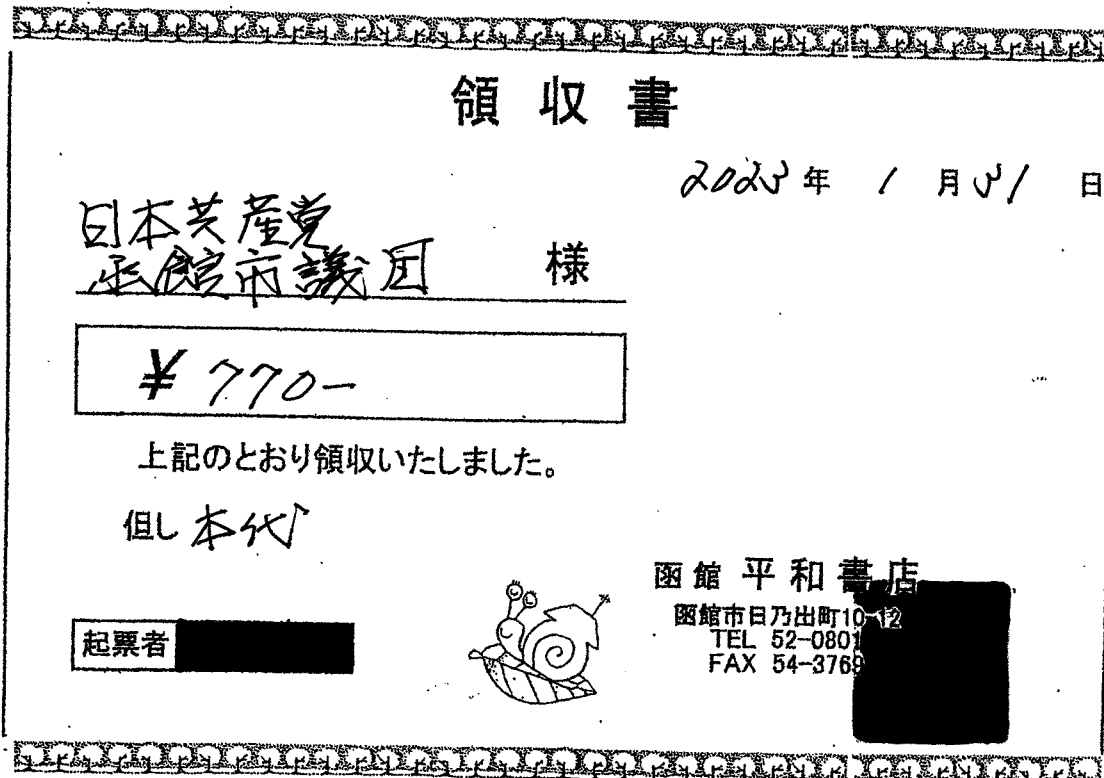 領収書
2023年 1月31日
日本共産党
函館市議団 様
¥770-
上記のとおり領収いたしました。
但し 本代
函館 平和書店
函館市日乃出町10-12
TEL 52-0801
FAX 54-3769
起票者